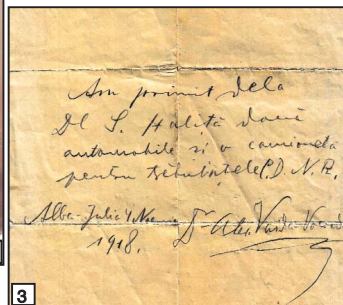 Am primit dela
Dl S. Haliță două
automobile si o camionetă
pentru trebuințele P.D.N.R.
Alba-Julia 4 Noem
1918. Dr Alex Vaida Voevod
3